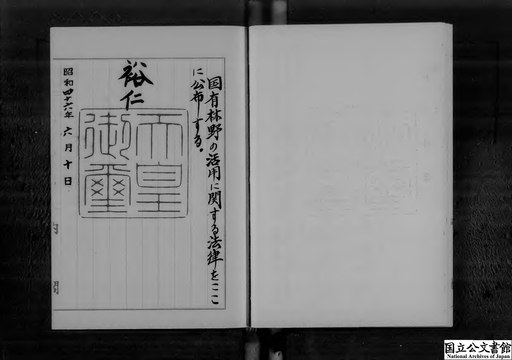 国有林野の活用に関する法律をここ
に公布する。
裕仁
天皇
御璽
昭和四十六年六月十日
国立公文書館
National Archives of Japan